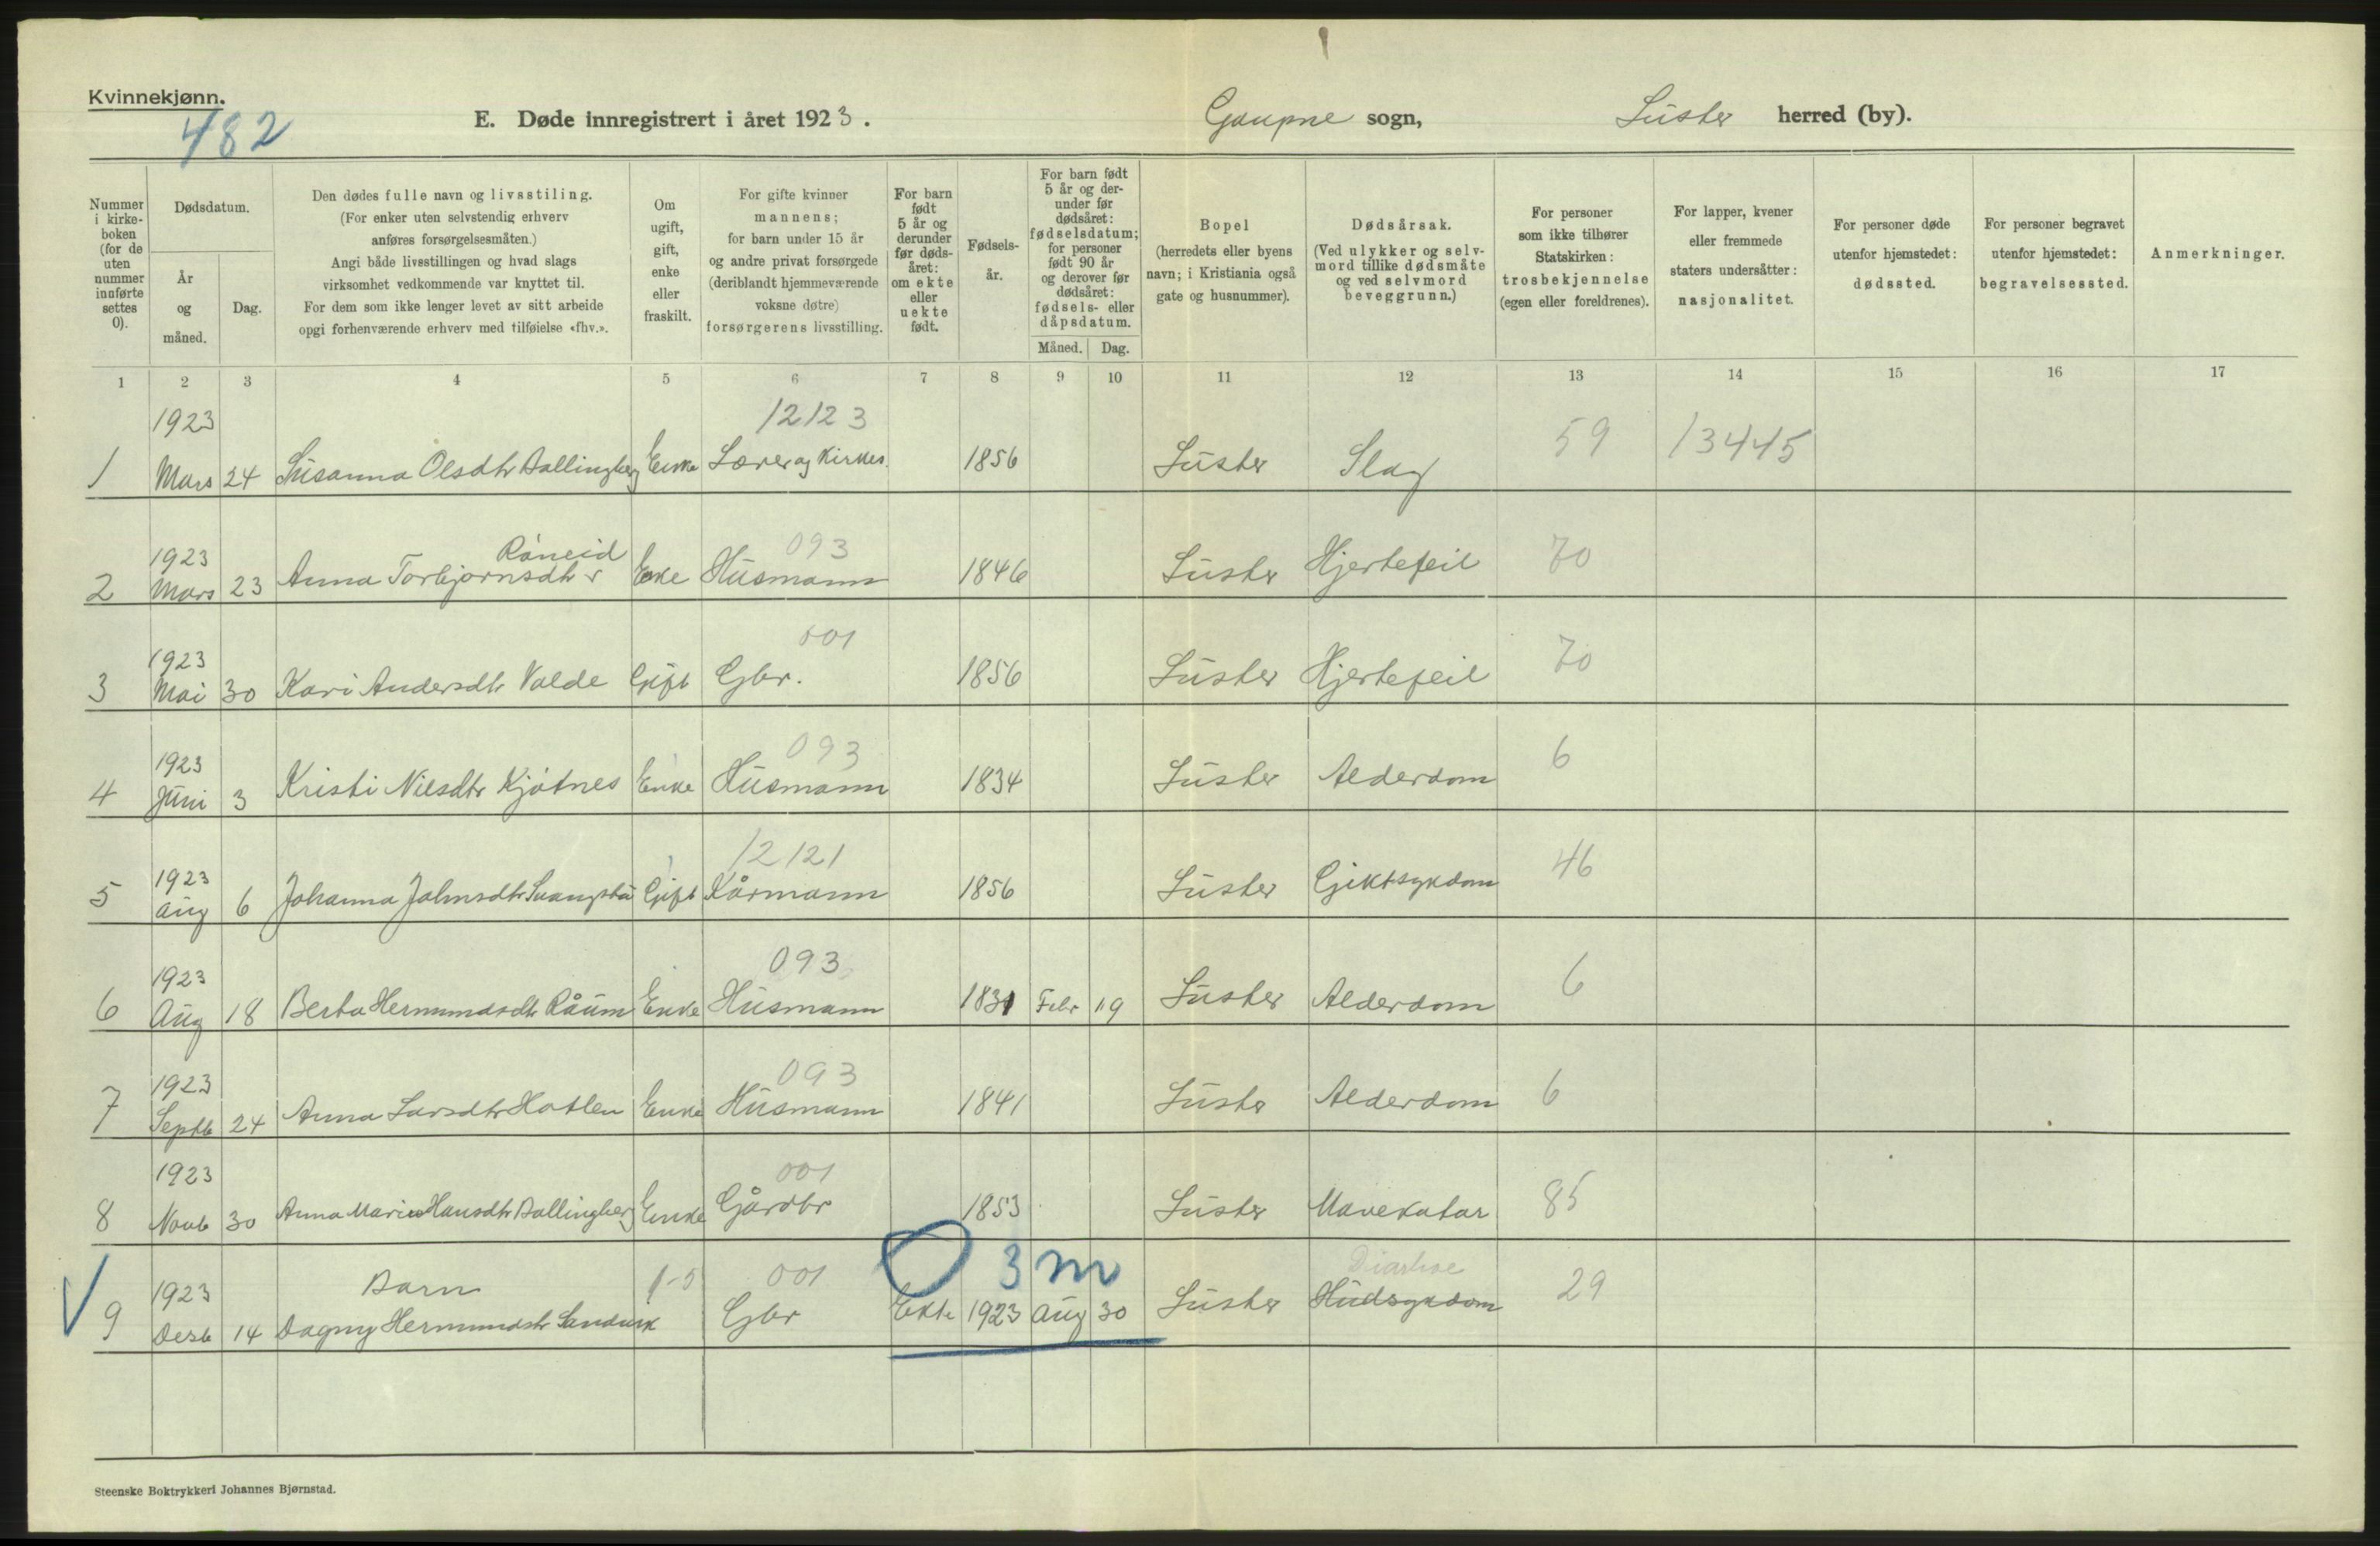 Kvinnekjønn.
482
E. Døde innregistrert i året 1923.
Gaupne sogn,
Luster herred (by).
Nummer i kirkeboken (for de uten nummer innførte settes 0).
Dødsdatum.
År og måned.
Dag.
Den dødes fulle navn og livsstilling.
(For enker uten selvstendig erhverv
anføres forsørgelsesmåten.)
Angi både livsstillingen og hvad slags
virksomhet vedkommende var knyttet til.
For dem som ikke lenger levet av sitt arbeide
opgi forhenværende erhverv med tilføielse «fhv.».
Om ugift, gift, enke eller fraskilt.
For gifte kvinner
mannens;
for barn under 15 år
og andre privat forsørgede
(deriblandt hjemmeværende
voksne døtre)
forsørgerens livsstilling.
For barn født 5 år og derunder før dødsåret: om ekte eller uekte født.
Fødselsår.
For barn født 5 år og derunder før dødsåret: fødselsdatum; for personer født 90 år og derover før dødsåret: fødsels- eller dåpsdatum.
Måned. Dag.
Bopel
(herredets eller byens
navn; i Kristiania også
gate og husnummer).
Dødsårsak.
(Ved ulykker og selvmord tillike dødsmåte og ved selvmord beveggrunn.)
For personer
som ikke tilhører
Statskirken:
trosbekjennelse
(egen eller foreldrenes).
For lapper, kvener
eller fremmede
staters undersåtter:
nasjonalitet.
For personer døde
utenfor hjemstedet:
dødssted.
For personer begravet
utenfor hjemstedet:
begravelsessted.
Anmerkninger.
1 2 3 4 5 6 7 8 9 10 11 12 13 14 15 16 17
1923 12123 59 13445
1 Mars 24 Susanna Olsdtr Bollingberg Enke Lærer og Kirkes. 1856 Luster Slag
1923 Råneid 093 70
2 Mars 23 Anna Torbjørnsdtr Enke Husmann 1846 Luster Hjertefeil
1923 001 70
3 Mai 30 Kari Andersdtr Volde Gift Gbr. 1856 Luster Hjertefeil
1923 093 6
4 Juni 3 Kristi Nilsdtr Kjøtnes Enke Husmann 1834 Luster Alderdom
1923 12121 46
5 Aug 6 Johanna Johnsdtr Gift Kårmann 1856 Luster Giktsykdom
1923 093 6
6 Aug 18 Berta Hermundsdtr Råum Enke Husmann 1831 Febr 19 Luster Alderdom
1923 093 6
7 Septb 24 Anna Larsdtr Hotlen Enke Husmann 1841 Luster Alderdom
1923 001 85
8 Novb 30 Anna Marie Hansdtr Bollingberg Enke Gårdbr 1853 Luster Mavekatar
0 3 m
1923 Barn 1-5 001 Diarhoe 29
9 Desb 14 Dagny Hermundsdtr Sandvik Gbr Ekte 1923 Aug 30 Luster Hudsykdom
Steenske Boktrykkeri Johannes Bjørnstad.